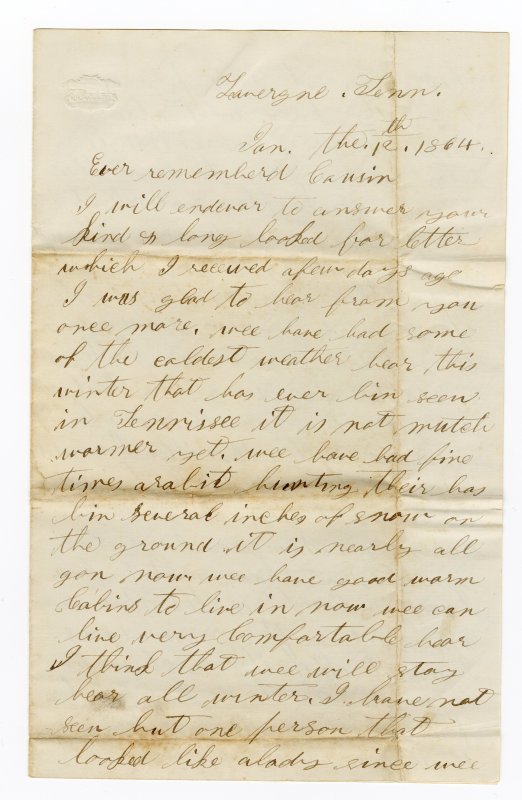 Lavergne. Tenn.
Jan. the. 12th. 1864.
Ever rememberd Cousin
I will endevor to answer your
kind & long looked for letter
which I received afew days ago
I was glad to hear from you
once more. wee have had some
of the coldest weather hear this
winter that has ever bin seen
in Tennissee it is not mutch
warmer yet. wee have had fine
times arabit hunting their has
bin several inches of snow on
the ground it is nearly all
gon now wee have good warm
Cabins to live in now wee can
live very Comfortable hear
I think that wee will stay
hear all winter. I have not
seen but one person that
looked like alady since wee